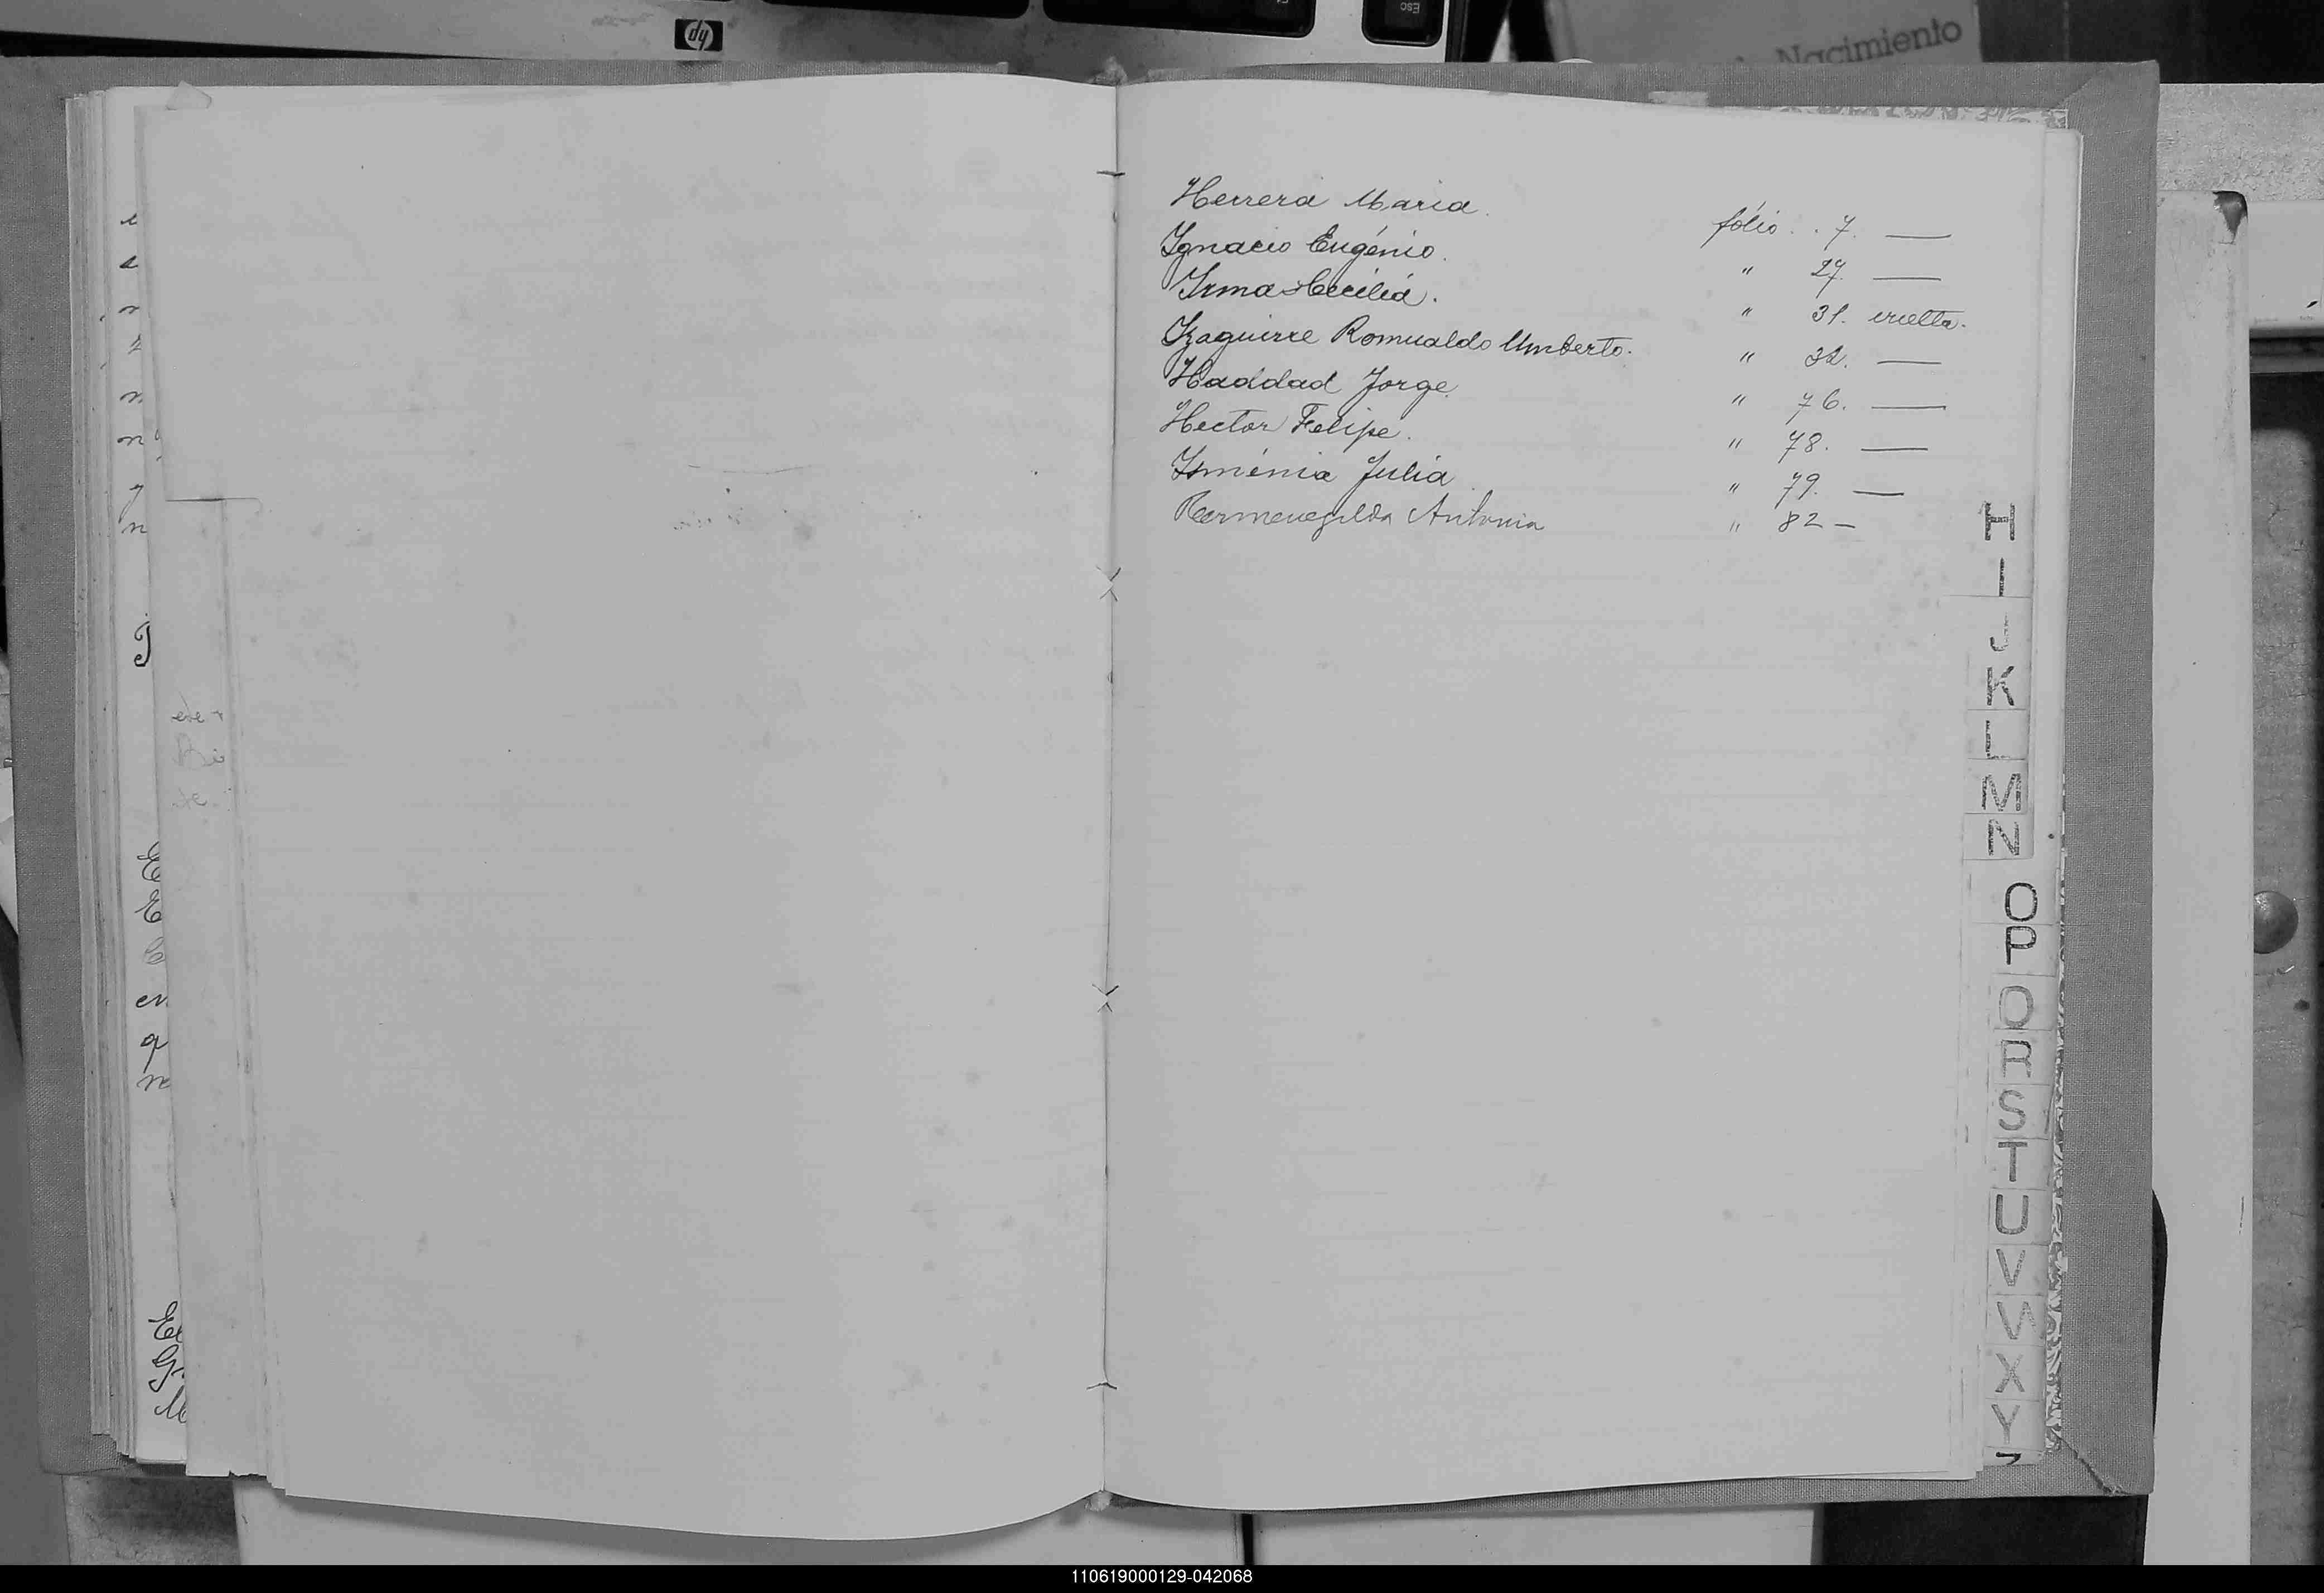 hp
Esc
Nacimiento
Herrera Maria. fólio . . 7. —
Ignacio Eugénio. " 27. —
Irma Cecilia. " 31. vuelta.
Izaguirre Romualdo Umberto. " 32. —
Haddad Jorge. " 76. —
Hector Felipe. " 78. —
Isménia Julia " 79. —
Hermenegilda Antonia " 82 —
H
I
J
K
L
M
N
O
P
Q
R
S
T
U
V
W
X
Y
110619000129-042068